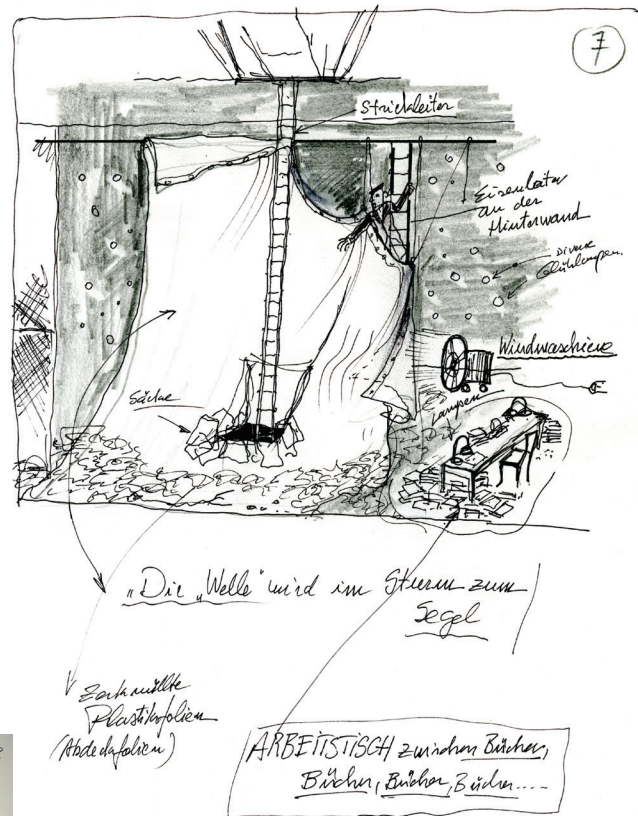 7
Strickleiter
Eisenleiter
an der
Hinterwand
Diverse
Glühlampen.
Windmaschiene
Säcke
Lampen
"Die „Welle“ wird im Sturm zum
Segel
Zerknüllte
Plastikfolien
(Abdeckfolien)
ARBEITSTISCH zwischen Bücher,
Bücher, Bücher, Bücher....